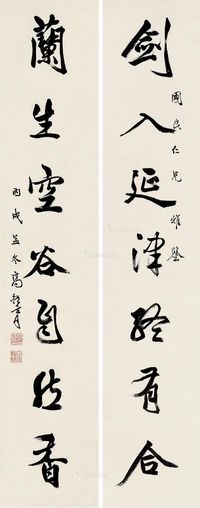 劍入延津終有合
國良仁兄雅鑒
蘭生空谷自然香
丙戌孟冬高